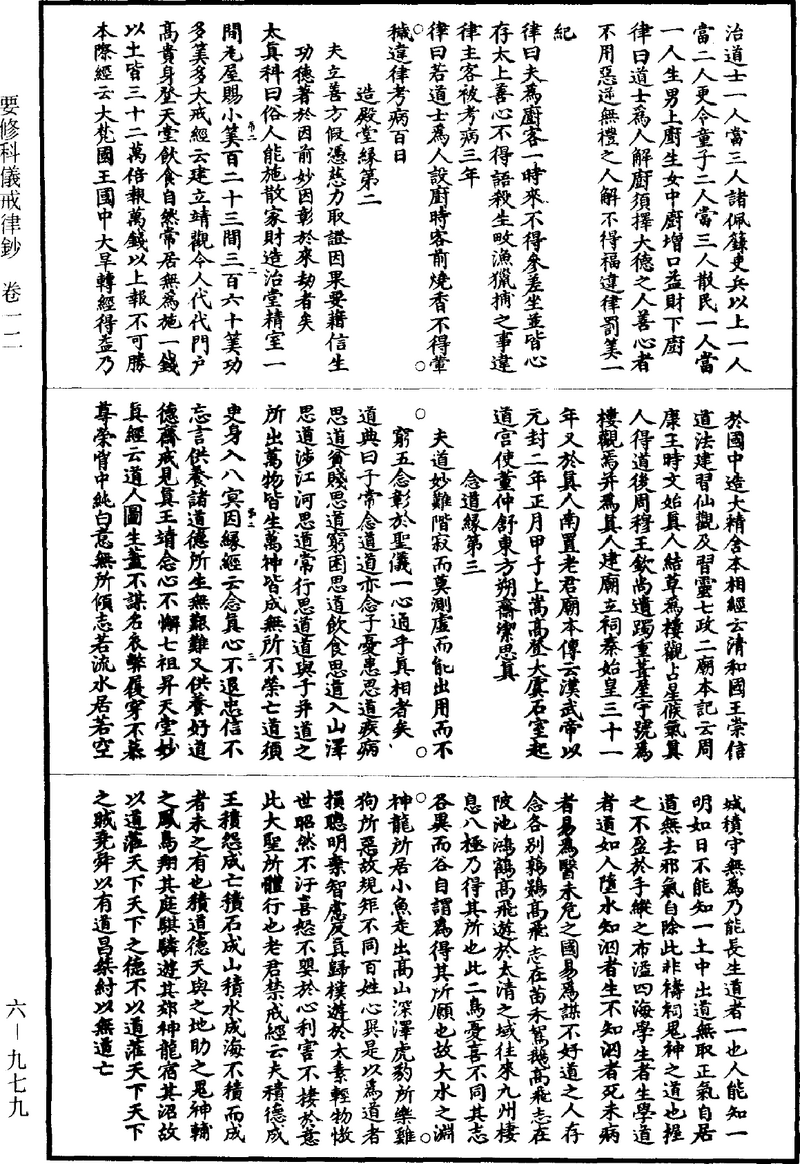 治道士一人當三人諸佩籙吏兵以上一人
當二人更令童子二人當三人散民一人當
一人生男上廚生女中廚增口益財下廚
律曰道士為人解廚須擇大德之人善心者
不用惡逆無禮之人解不得福違律罰筭一
紀
律曰夫為廚客一時來不得參差坐並皆心
存太上善心不得語殺生畋漁獵捕之事違
律主客被考病三年
律曰若道士為人設廚時客前燒香不得葷
穢違律考病百日
造殿堂緣第二
夫立善方假憑慈力取證因果要藉信生
功德著於因前妙因彰於來劫者矣
太真科曰俗人能施散家財造治堂精室一
間瓦屋賜小筭百二十三間三百六十筭功
多筭多大戒經云建立靖觀令人代代門戶
高貴身登天堂飲食自然常居無為施一錢
以上皆三十二萬倍報萬錢以上報不可勝
本際經云大梵國王國中大旱轉經得益乃
於國中造大精舍本相經云清和國王崇信
道法建習仙觀及習靈七政二廟本記云周
康王時文始真人結草為樓觀占星候氣真
人得道後周穆王欽尚遺躅重葺屋宇號為
樓觀焉并為真人建廟立祠秦始皇三十一
年又於真人南置老君廟本傳云漢武帝以
元封二年正月甲子上嵩高登大虞石室起
道宮使董仲舒東方朔齋潔思真
念道緣第三
夫道妙難階寂而莫測虛而能出用而不
窮五念彰於聖儀一心通乎真相者矣
道典曰子常念道道亦念子憂患思道疾病
思道貧賤思道窮困思道飲食思道入山澤
思道涉江河思道常行思道道與子并道之
所出萬物皆生萬神皆成無所不榮亡道須
臾身入八冥因緣經云念真心不退忠信不
忘言供養諸道德所生無艱難又供養好道
德齋戒見真王靖念心不懈七祖昇天堂妙
真經云道人圖生蓋不謀名衣弊履穿不慕
尊榮胷中純白意無所傾志若流水居若空
城積守無為乃能長生道者一也人能知一
明如日不能知一土中出道無取正氣自居
道無去邪氣自除此非禱祠鬼神之道也握
之不盈於手縱之布溢四海學生者生學道
者道如人墮水知泅者生不知泅者死未病
者易為醫未危之國易為謀不好道之人存
念各別鶉鷃高飛志在苗禾駕鵝高飛志在
陂池鴻鶴高飛遊於太清之域往來九州棲
息八極乃得其所也此二鳥憂喜不同其志
各異而谷自謂為得其所願也故大水之淵
神龍所居小魚走出高山深澤虎豹所樂雞
狗所惡故規矩不同百姓心異是以為道者
損聰明棄智慮反真歸樸遊於太素輕物傲
世昭然不汙喜怒不嬰於心利害不棲於意
此大聖所體行也老君禁戒經云夫積德成
王積怨成亡積石成山積水成海不積而成
者未之有也積道德天與之地助之鬼神輔
之鳳鳥翔其庭騏驎遊其郊神龍宿其沼故
以道蒞天下天下之德不以道蒞天下天下
之賊堯舜以有道昌桀紂以無道亡
要修科儀戒律鈔 卷一二
六-九七九